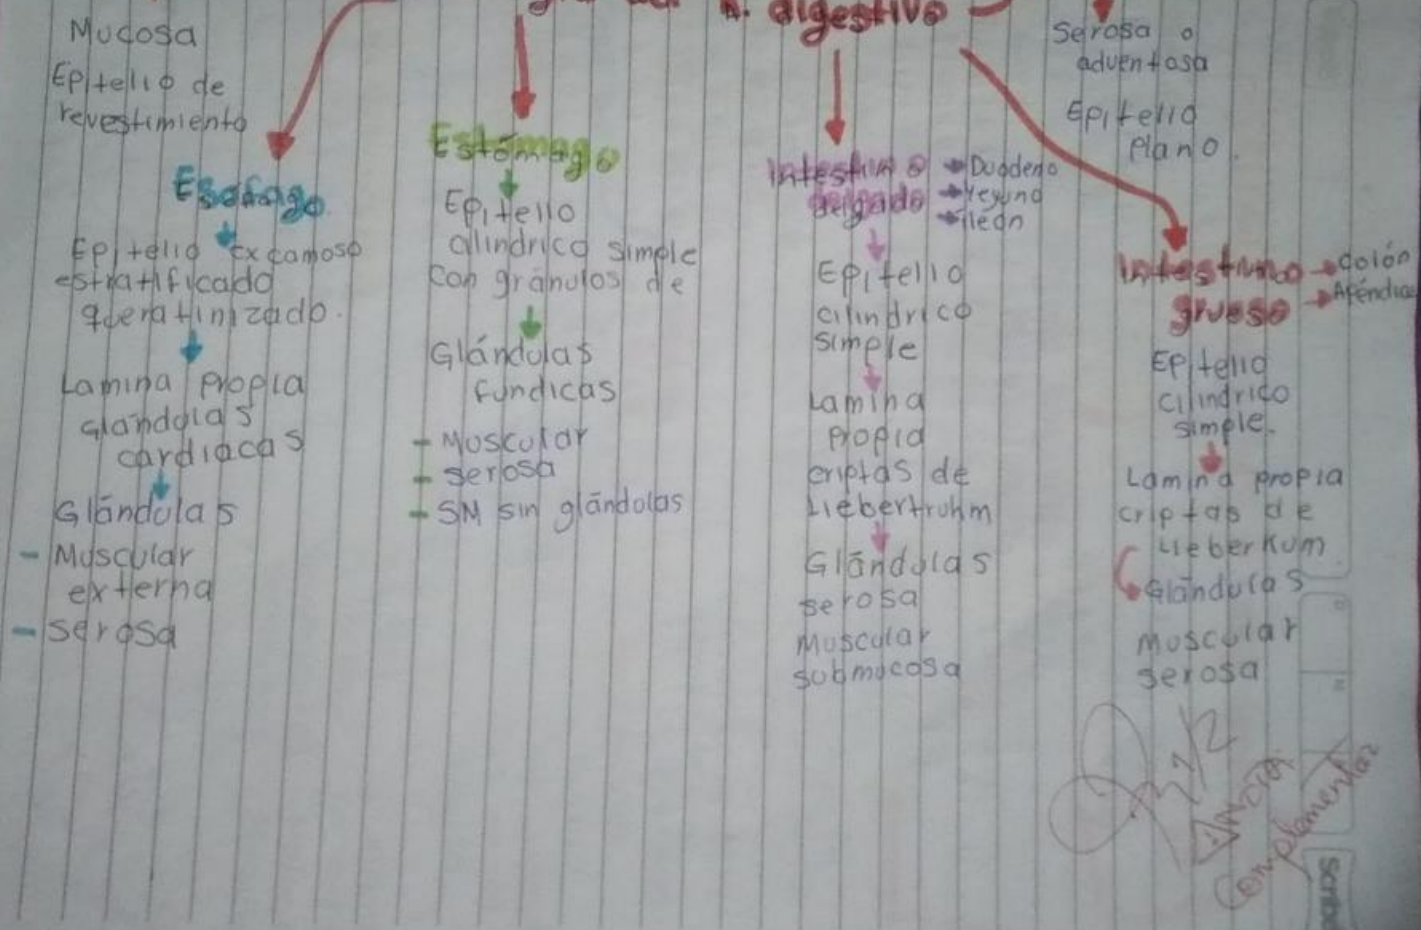 A. digestivo
Mucosa
Epitelio de
revestimiento
Serosa o
adventosa
Epitelio
Plano.
Esófago
Epitelio Excamoso
estratificado
queratinizado.
Lamina Propia
Glandulas
cardiacas
Glándulas
- Muscular
externa
- Serosa
Estómago
Epitelio
cilindrico simple
con gránulos de
Glándulas
Fundicas
- Muscular
- serosa
- SM sin glándulas
Intestino
delgado
Duodeno
Yeyuno
Ileon
Epitelio
cilindrico
simple
Lamina
Propia
criptas de
Liebertruhm
Glándulas
serosa
Muscular
submucosa
Intestino
grueso
Colón
Apéndice
Epitelio
cilindrico
simple.
Lamina propia
criptas de
Lieberkum
Glándulas
Muscular
serosa
Complementar
Scribe